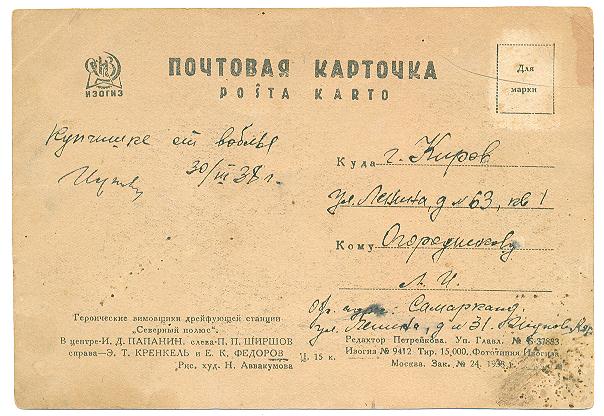 ИЗОГИЗ
ПОЧТОВАЯ КАРТОЧКА
POŜTA KARTO
Для
марки
Купчишке от воблы
30/III 38 г.
Куда г. Киров
ул. Ленина, д № 63, кв 1
Кому Огородникову
Л. И.
Обр. адрес: Самарканд,
бул. Ленина, д № 31.
Героические зимовщики дрейфующей станции
„Северный полюс".
В центре-И. Д. ПАПАНИН. слева-П. П. ШИРШОВ
справа—Э. Т. КРЕНКЕЛЬ и Е. К. ФЕДОРОВ
Рис. худ. Н. Аввакумова
Ц. 15 к.
Редактор Петрейкова. Уп. Главл. № Б-37883.
Изогиз № 9412 Тир. 15,000, Фототипия Изогиза
Москва. Зак. № 24. 1938 г.